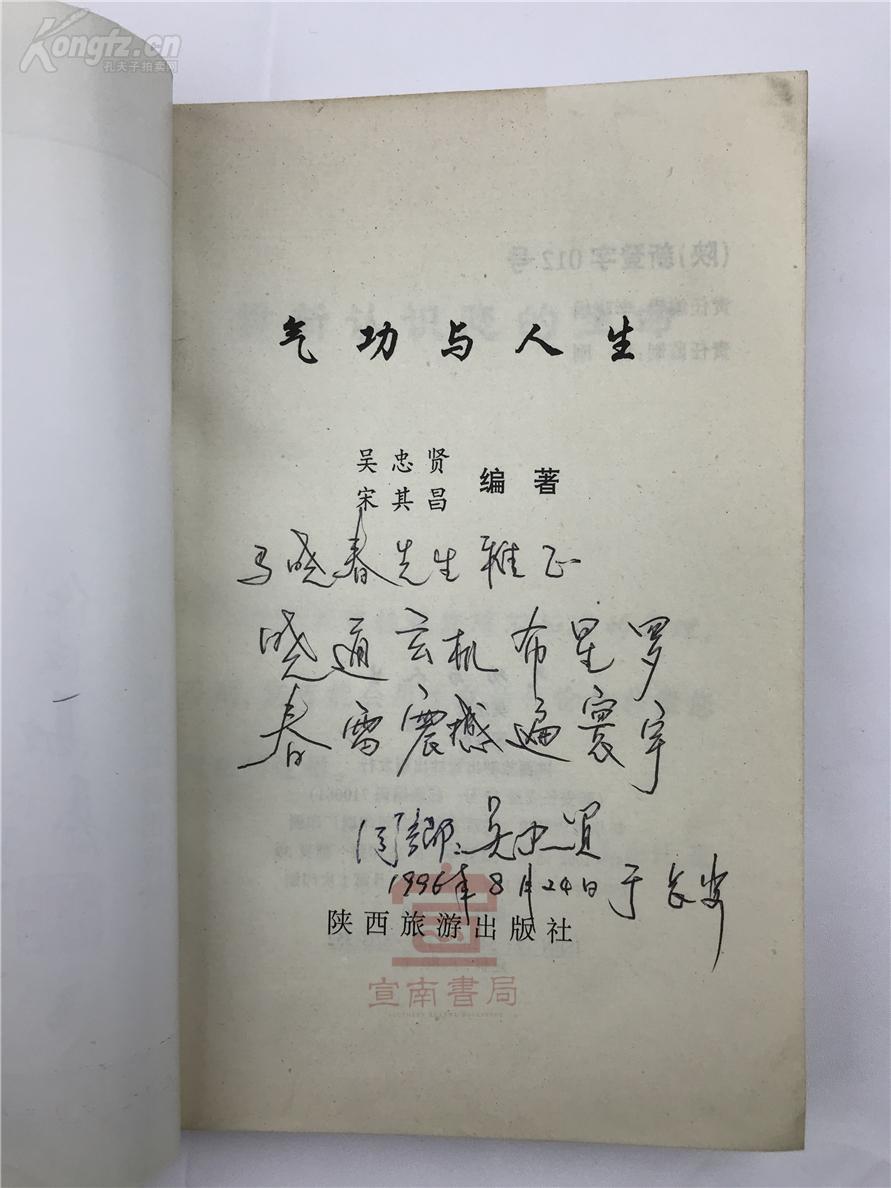 Kongfz.cn
孔夫子拍卖网
(陕)新登字012号
气功与人生
吴忠贤
宋其昌
编著
马晓春先生雅正
晓通玄机布星罗
春雷震撼遍寰宇
同乡 吴忠贤
1996年8月24日于长安
陕西旅游出版社
宣南書局